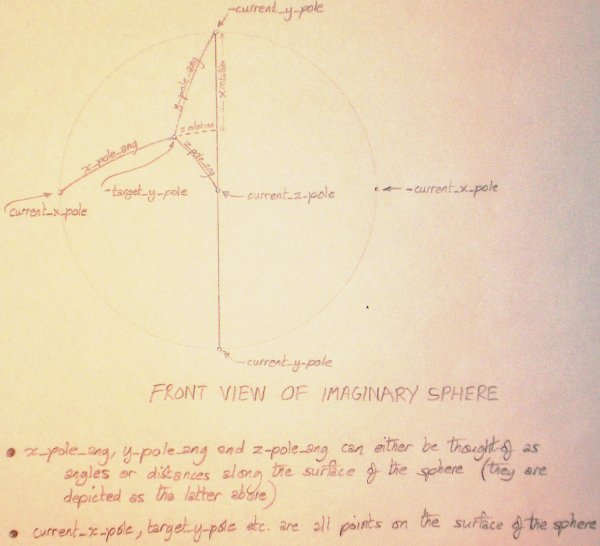 -current_y_pole
y-pole_ang
x rotation
z rotation
x-pole_ang
z-pole_ang
-target_y_pole
current_z_pole
-current_x_pole
current_x_pole
current_y_pole
FRONT VIEW OF IMAGINARY SPHERE
• x_pole_ang, y-pole_ang and z-pole_ang can either be thought of as
angles or distances along the surface of the sphere (they are
depicted as the latter above)
• current_x_pole, target_y_pole etc. are all points on the surface of the sphere